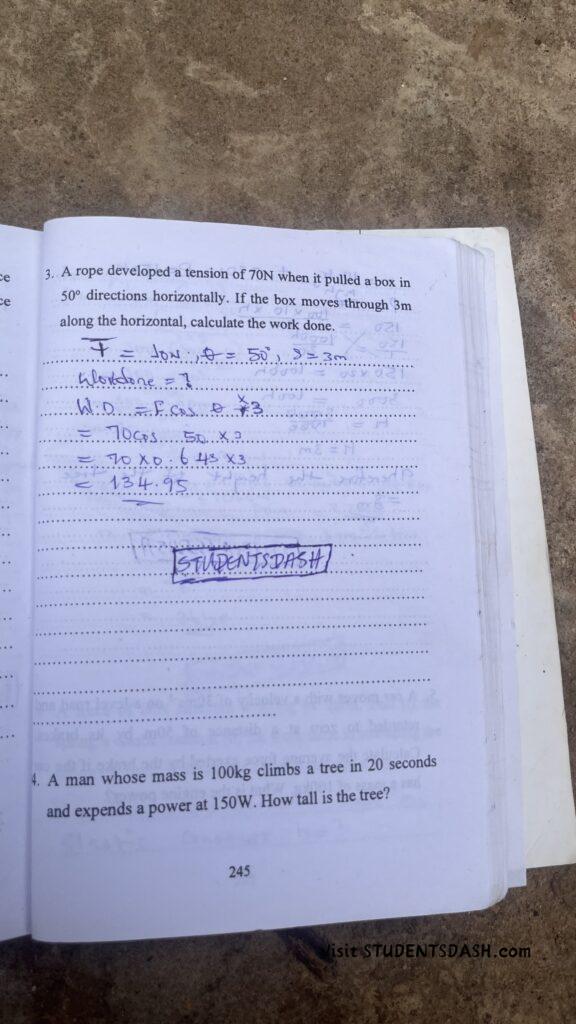 3. A rope developed a tension of 70N when it pulled a box in
50° directions horizontally. If the box moves through 3m
along the horizontal, calculate the work done.
T = 70N, θ = 50°, S = 3m
Workdone = ?
W.D = F cos θ × 3
= 70 cos 50 × 3
= 70 × 0.643 × 3
= 134.95
STUDENTSDASH
4. A man whose mass is 100kg climbs a tree in 20 seconds
and expends a power at 150W. How tall is the tree?
245
Visit STUDENTSDASH.com